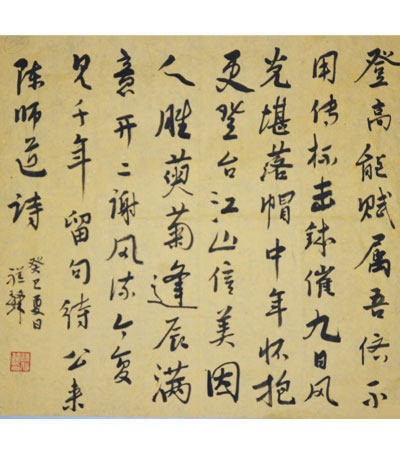 登高能赋属吾侪不
用传杯击钵催九日风
光堪落帽中年怀抱
更登台江山信美因
人胜萸菊逢辰满
意开二谢风流今复
见千年留句待公来
陈师道诗
癸巳夏日